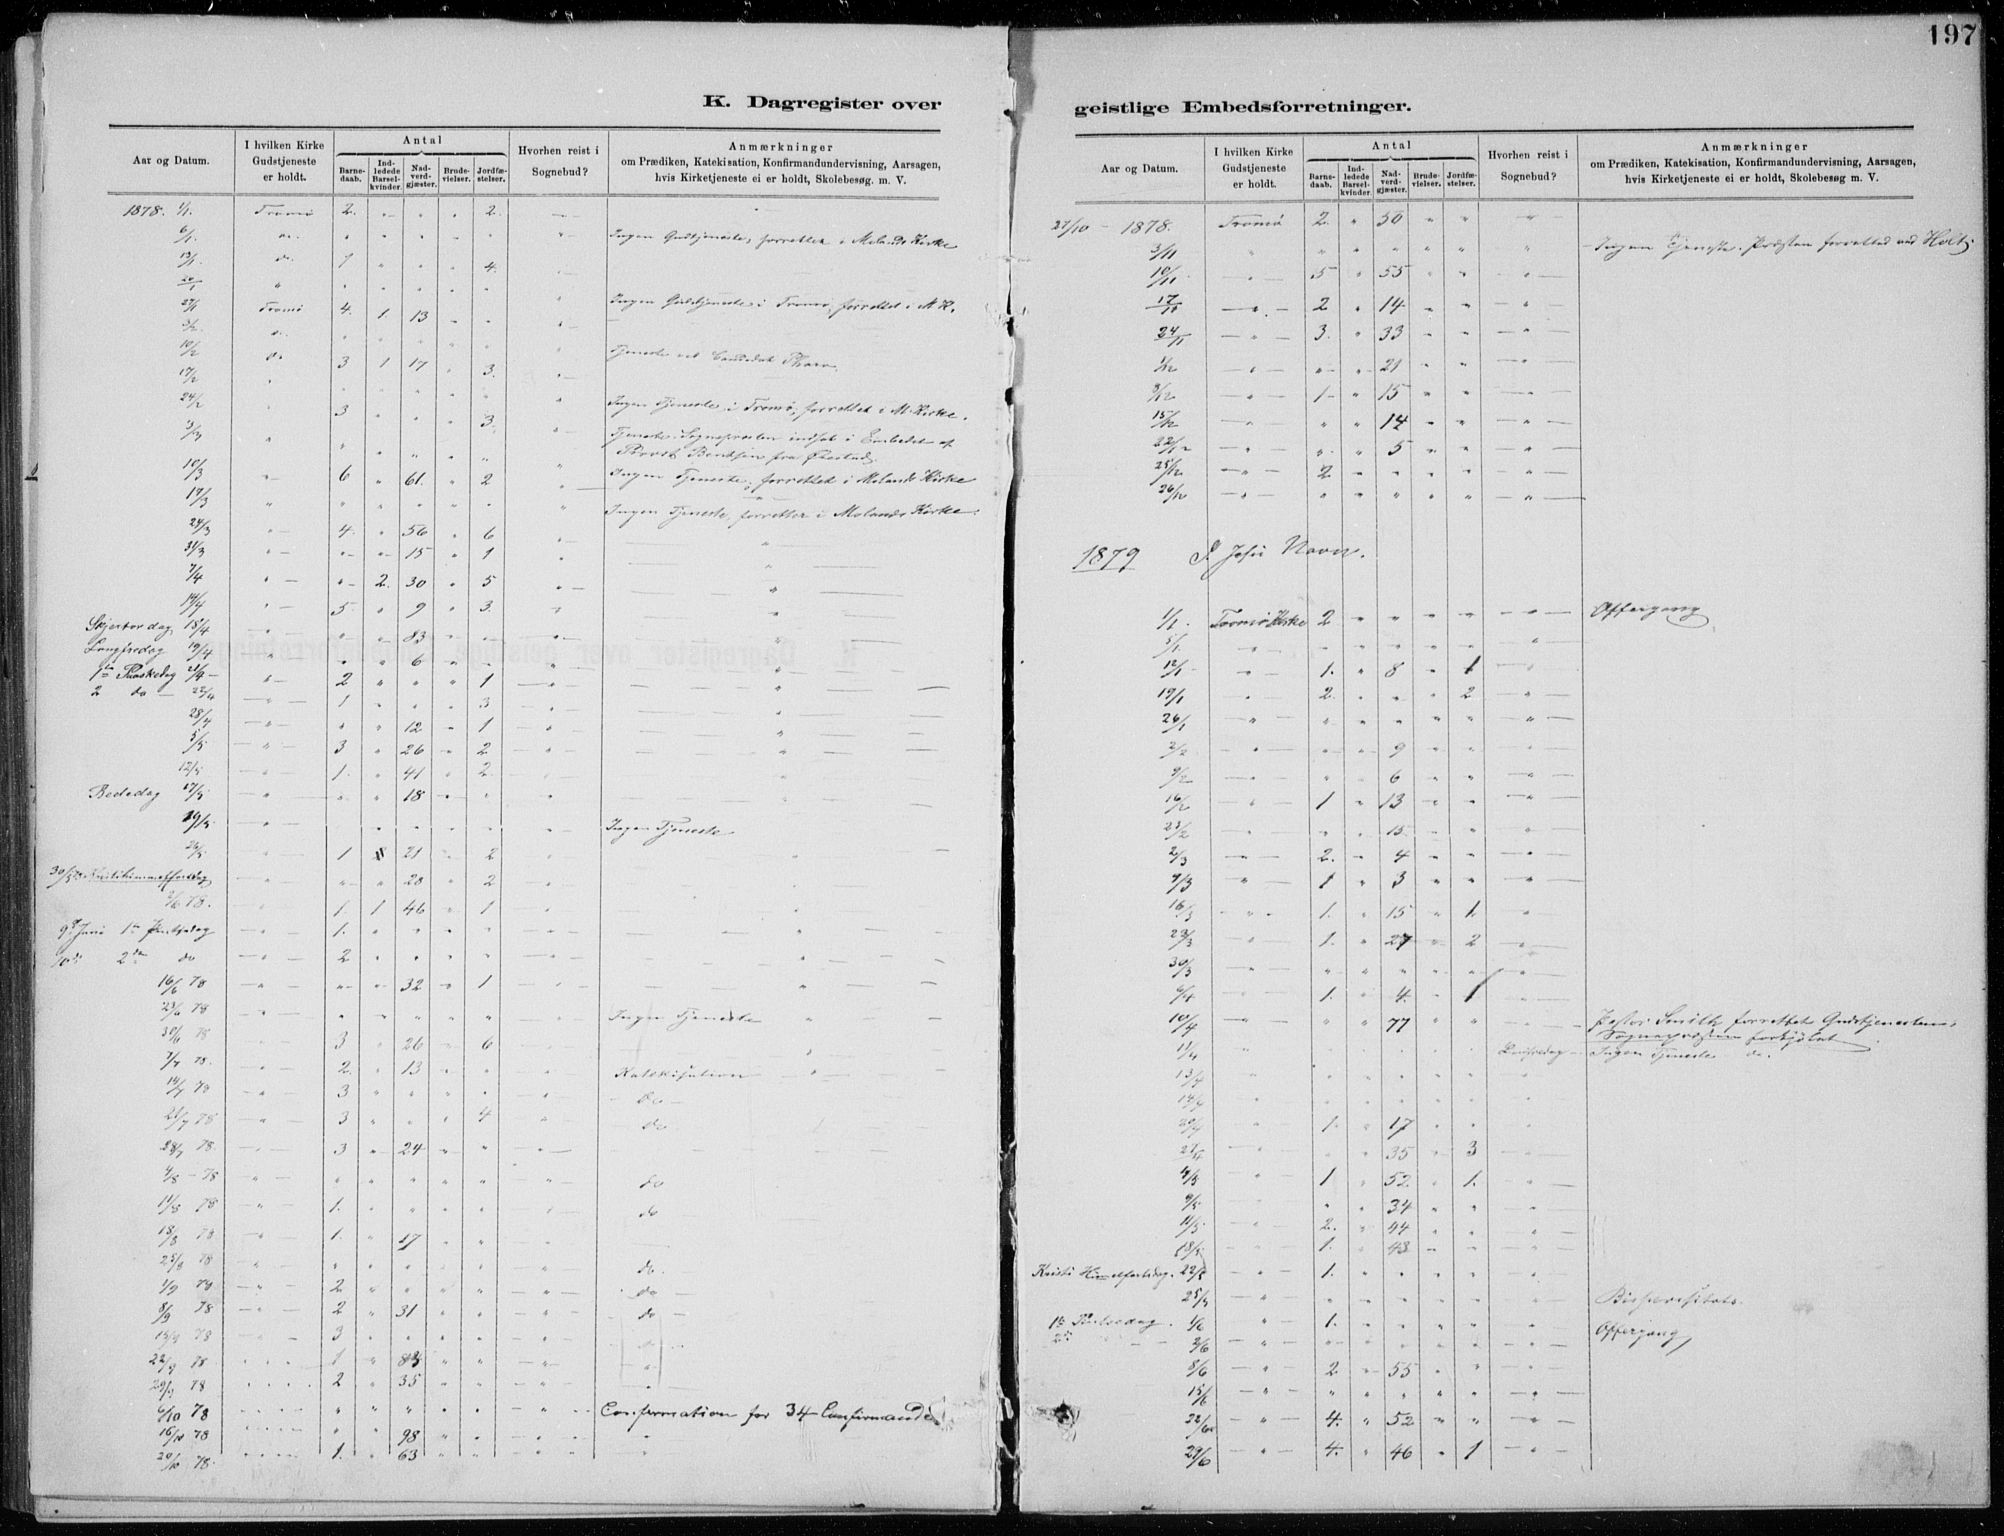 197
K. Dagregister over
Aar og Datum. I hvilken Kirke Gudstjeneste er holdt. Antal Barne-daab. Ind-ledede Barsel-kvinder. Nad-verd-gjæster. Brude-vielser. Jordfæ-stelser. Hvorhen reist i Sognebud? Anmærkninger om Prædiken, Katekisation, Konfirmandundervisning, Aarsagen, hvis Kirketjeneste ei er holdt, Skolebesøg m. V.
1878. 1/1. Tromø 2. " " " 2. "
6/1. do. " " " " " " Ingen Gudstjeneste, forrettet i Molands Kirke
13/1. do. 1 " " " 4. "
20/1 " " " " " " " Ingen Gudstjeneste i Tromø, forrettet i M.K.
27/1 Tromø 4. 1. 13 " " "
3/2. do. " " " " " " Tjeneste ved Candidat
10/2 do 3 1 17 " 3. "
17/2 " " " " " " " Ingen Tjeneste i Tromø, forrettet i M. Kirke.
24/2 " 3 " " " 3. " Tjeneste. Sognepresten indsat i Embedet af
3/3 " " " " " " " Provst Berntsen fra
10/3 " 6 " 61. " 2 " Ingen Tjeneste, forrettet i Molands Kirke
17/3 " " " " " " " Ingen Tjeneste, forrettet i Molands Kirke.
24/3 " 4. " 56 " 6 " "
31/3 " " " 15 " 1 " "
7/4 " " 2. 30 " 5 " "
14/4 " 5. " 9 " 3. " "
Skjertordag 18/4 " " " 83 " " " "
Langfredag 19/4 " " " 6 " " " "
1ste Paaskedag 21/4 " 2 " " " 1 " "
2 do 22/4 " 1 " " " 3 " "
28/4 " " " 12 " 1 " "
5/5 " 3 " 26 " 2 " "
12/5 " 1. " 41 " 2. " "
Bededag 17/5 " " " 18 " " "
19/5 " " " " " " " Ingen Tjeneste
26/5 " 1 21 " 2 " "
30/5 Kristihimmelfartsdag " " " 28 " 2 " "
2/6 78. " 1. 1 46 " 1 " "
9de Juni 1ste Pintsedag " 1. " " " " " "
10de 2den do " 2 " " " " " "
16/6 78 " " " 32 " 1 " "
23/6 78 " " " " " " " Ingen Tjeneste "
30/6 78 " 3 " 26 " 6 "
7/7 78. " 2. " 13 " " " Katekisation "
14/7 78 " 3 " " " " " do
21/7 78 " 3 " " " 4 " do
28/7 78 " 3 " 24 " " "
4/8 - 78 " " " " " " " do
11/8 78 " 1. " " " " " do
18/8 78 " 1. " 17 " " "
25/8 78 " " " " " " " do.
1/9 78 " 2 " " " " " do
8/9 78 " 2 " 31 " " " do
15/9 78 " 3 " " " " " "
22/9 78 " 1 " 83 " " " "
29/9 78 " 2 " 35 " " " "
6/10 78 " " " " " " " Confirmation for 34 Confirmander
16/10 78 " " " 98 " " " "
20/10 78. " 1. " 63 " " " "
geistlige Embedsforretninger.
Aar og Datum. I hvilken Kirke Gudstjeneste er holdt. Antal Barne-daab. Ind-ledede Barsel-kvinder. Nad-verd-gjæster. Brude-vielser. Jordfæ-stelser. Hvorhen reist i Sognebud? Anmærkninger om Prædiken, Katekisation, Konfirmandundervisning, Aarsagen, hvis Kirketjeneste ei er holdt, Skolebesøg m. V.
27/10 - 1878. Tromø 2. " 50 " " "
3/11 " " " " " " " Ingen Tjeneste. Præsten forrettet ved Holt
10/11 " 5 " 55 " " "
17/11 " 2 " 14 " " "
24/11 " 3. " 33 " " "
1/12 " " " 21 " " "
8/12 " 1 " 15 " " "
15/12 " " " 14 " " "
22/12 " " " 5 " " "
25/12 " 2 " " " " "
26/12 " " " " " " "
1879 I Jesu Navn.
1/1. Tromø Kirke 2 " " " " " Offergang
5/1. " " " " " " "
12/1 " 1. " 8 " 1 "
19/1 " 2. " " " 2 "
26/1 " " " " " " "
2/2 " " " 9 " " "
9/2 " " " 6 " " "
16/2 " 1 " 13 " " "
23/2 " " " 15 " " "
2/3 " 2. " 4 " " "
9/3 " 1 " 3 " " "
16/3 " 1. " 15 " 1. "
23/3 " 1. " 27 " 2 "
30/3 " " " " " " "
6/4 " 1. " 4. " 1 "
10/4 " " " 77 " " " Pastor Smith forrettet Gudstjenesten, Sognepræsten forkjølet.
11/4 " " " " " " Langfredag Ingen Tjeneste do.
13/4 " " " " " " "
14/4 " " " " " " "
20/4 " 1. " 17 " " "
27/4 " " " 35 " 3 "
4/5 " 1 " 52 " 1. "
9/5 " " " 34 " " "
11/5 " 2. " 44 " " "
18/5 " 1. " 43 " " "
Kristi Himmelfartsdag. 22/5 " 1. " " " " "
25/5 " " " " " " " Bispevisitats.
1ste Pintsedag. 1/6 " 1. " " " " " Offergang
2den 2/6 " " " " " "
8/6 " 2 " 55 " " "
15/6 " " " " " " "
22/6 " 4. " 52 " " "
29/6 " 4. " 46 " 1 "